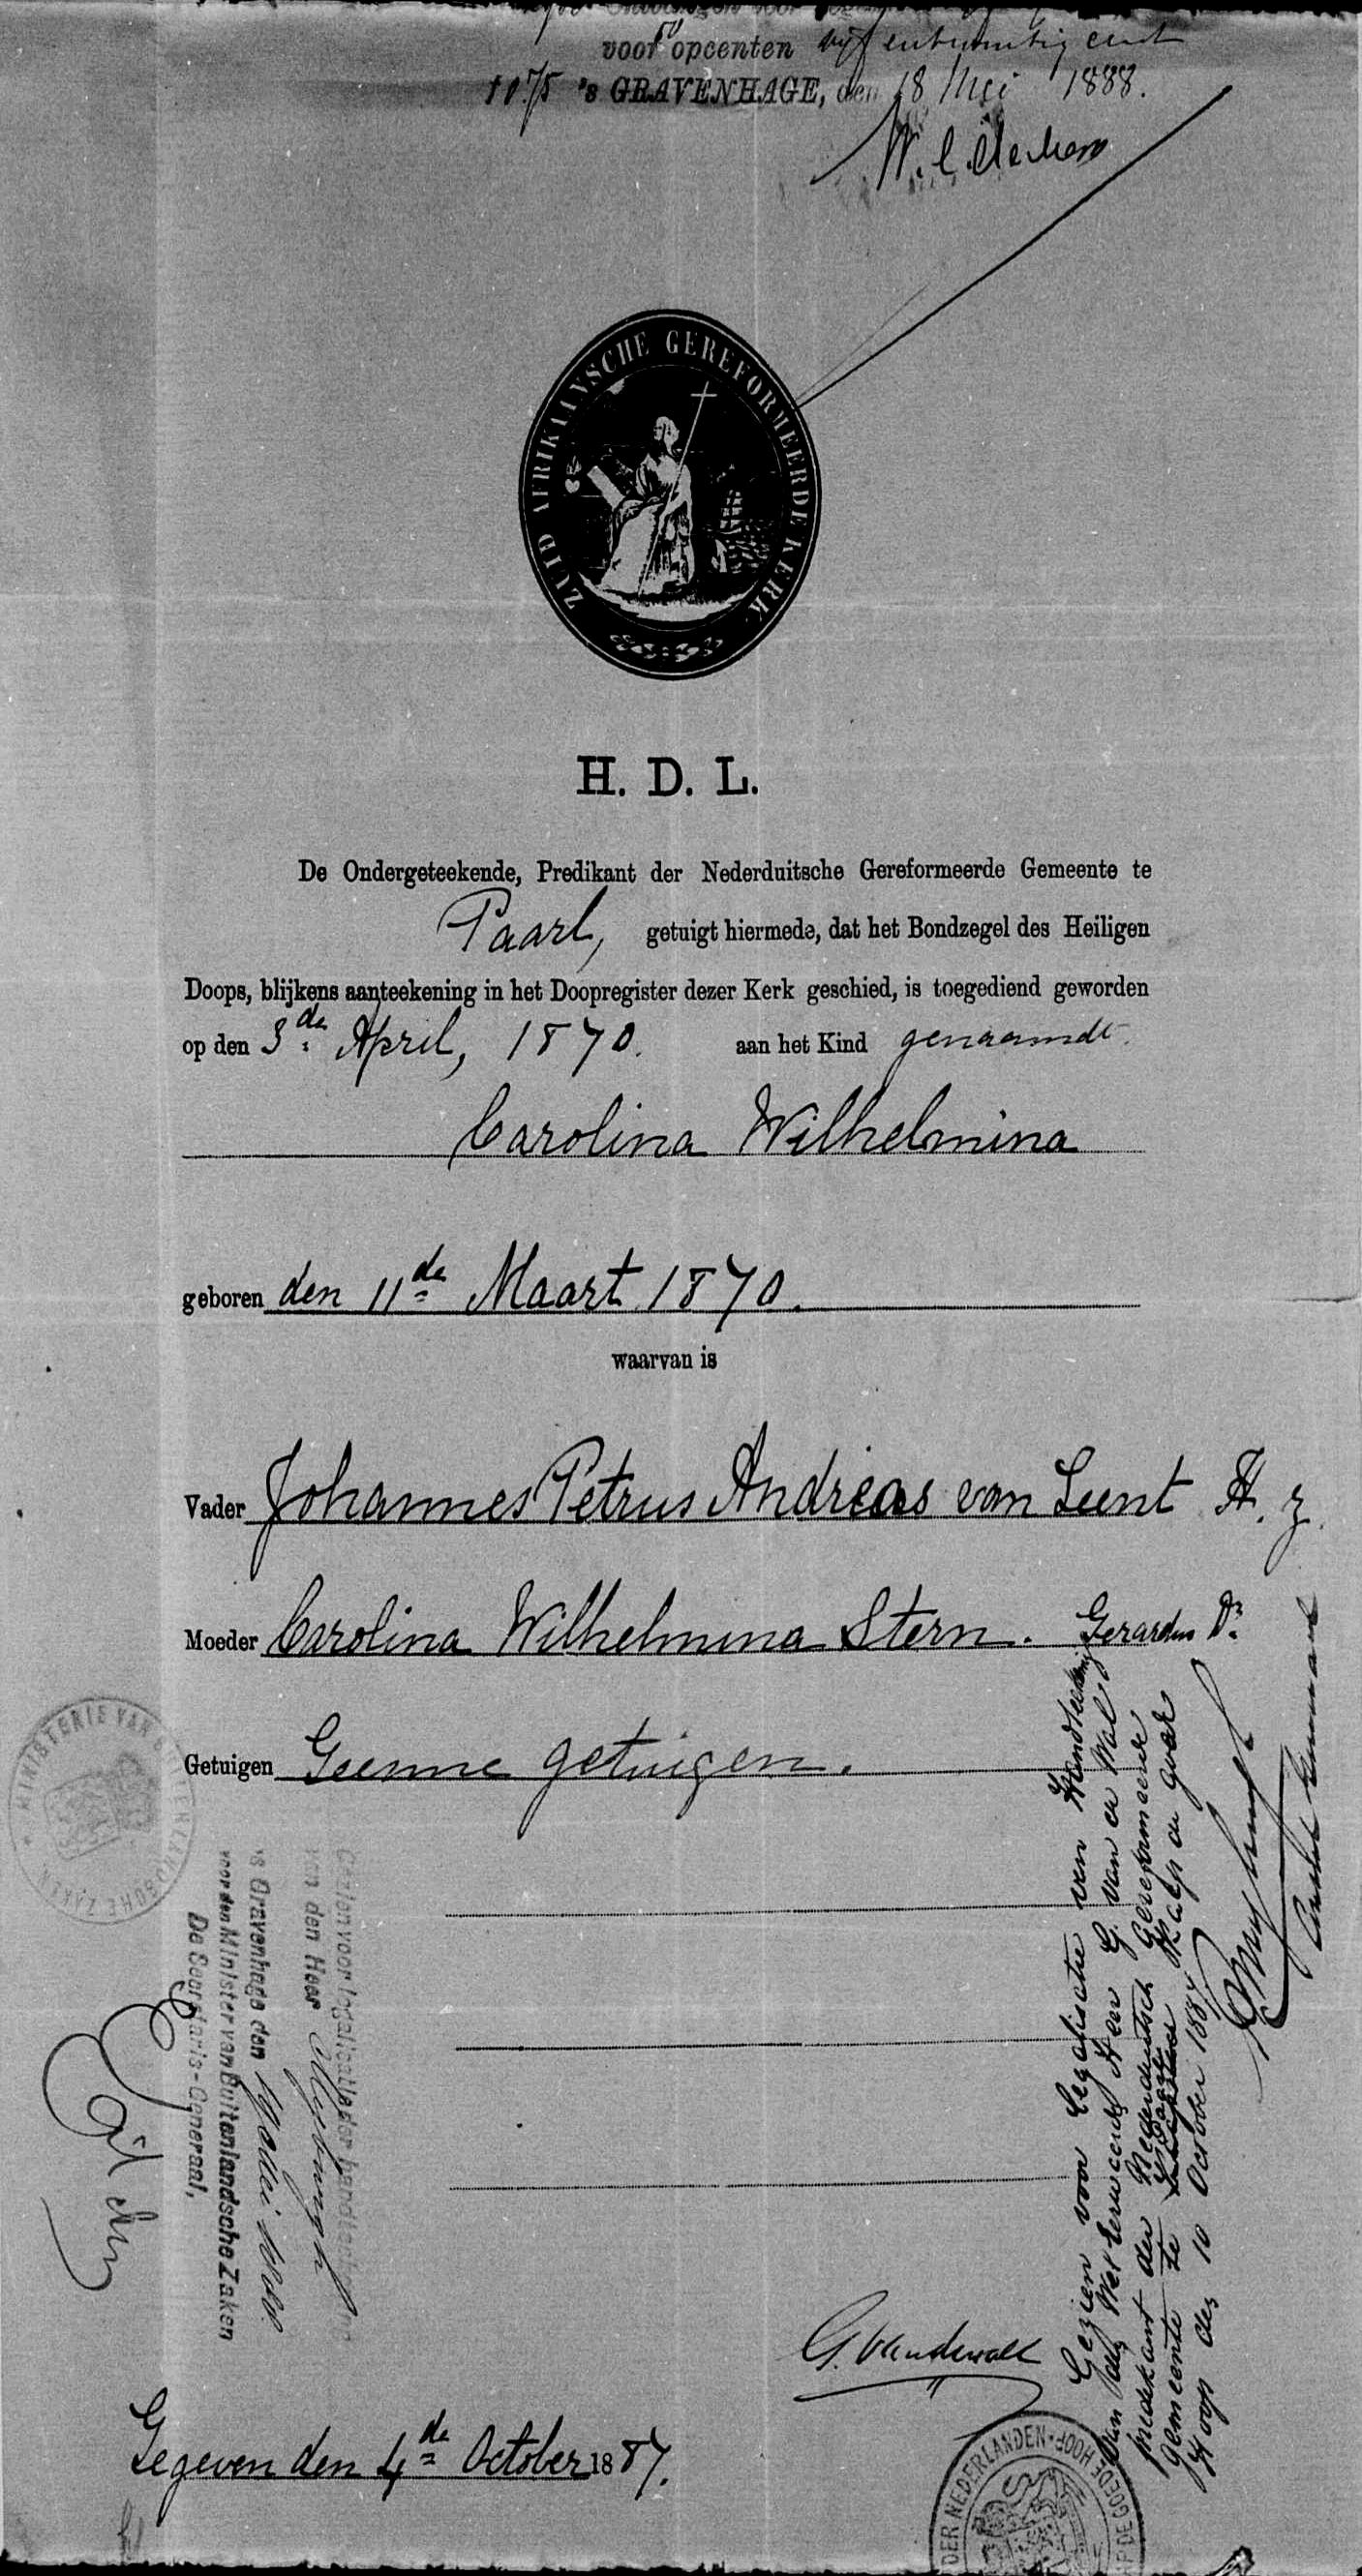 voor opcenten vijf entwintig cent
's GRAVENHAGE, den 18 Mei 1888.
ZUID AFRIKAANSCHE GEREFORMEERDE KERK.
H. D. L.
De Ondergeteekende, Predikant der Nederduitsche Gereformeerde Gemeente te
Paarl, getuigt hiermede, dat het Bondzegel des Heiligen
Doops, blijkens aanteekening in het Doopregister dezer Kerk geschied, is toegediend geworden
op den 3de April, 1870. aan het Kind genaamdt.
Carolina Wilhelmina
geboren den 11de Maart 1870.
waarvan is
Vader Johannes Petrus Andreas van Leent H. z.
Moeder Carolina Wilhelmina Stern. Gerardus Dr.
Getuigen Geenne getuigen.
MINISTERIE VAN BUITENLANDSCHE ZAKEN
Gezien voor legalisatie der handteekening
van den Heer
's Gravenhage den
voor den Minister van Buitenlandsche Zaken
De Secretaris-Generaal,
Gezien voor legalisatie van Handteekening
van den Wel Eerwaerde Heer G. van de Wal
predekant der Nederduitsch Gereformeerde
gemeente te Paarl Kaap de goede
Hoop den 10 October 1887
G. Van de Wall
Gegeven den 4de October 1887.
DER NEDERLANDEN · HOOP DE GOEDE